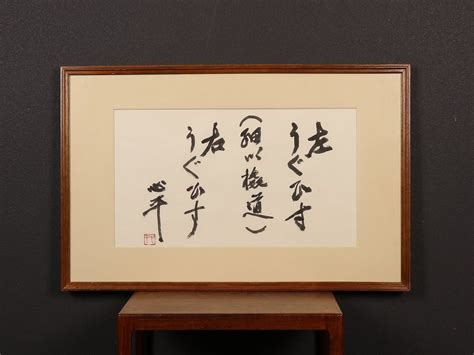 左うぐひす
(細い橇道)
右うぐひす
心平